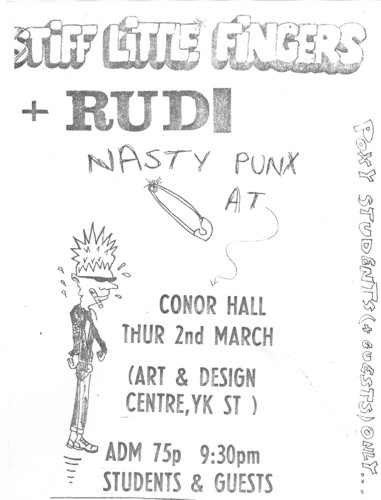 STIFF LITTLE FINGERS
+ RUDI
NASTY PUNX
AT
CONOR HALL
THUR 2nd MARCH
(ART & DESIGN
CENTRE,YK ST )
ADM 75p 9:30pm
STUDENTS & GUESTS
POXY STUDENTS (+ GUESTS) ONLY...